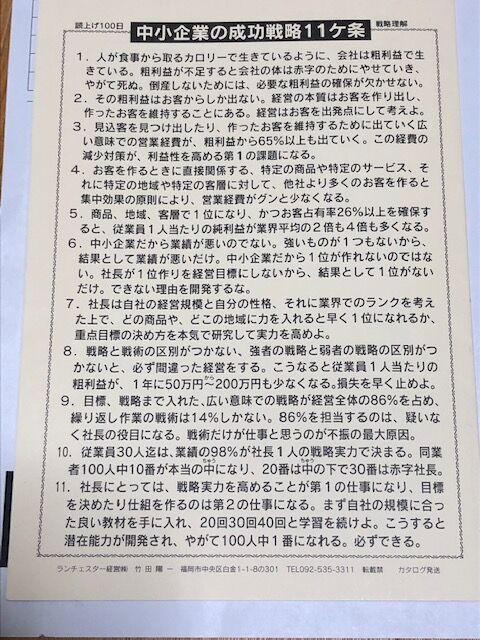 読上げ100日
中小企業の成功戦略11ケ条
戦略理解
1.人が食事から取るカロリーで生きているように、会社は粗利益で生
きている。粗利益が不足すると会社の体は赤字のためにやせていき、
やがて死ぬ。倒産しないためには、必要な粗利益の確保が欠かせない。
2.その粗利益はお客からしか出ない。経営の本質はお客を作り出し、
作ったお客を維持することにある。経営はお客を出発点にして考えよ。
3.見込客を見つけ出したり、作ったお客を維持するために出ていく広
い意味での営業経費が、粗利益から65%以上も出ていく。この経費の
減少対策が、利益性を高める第1の課題になる。
4.お客を作るときに直接関係する、特定の商品や特定のサービス、そ
れに特定の地域や特定の客層に対して、他社より多くのお客を作ると
集中効果の原則により、営業経費がグンと少なくなる。
5.商品、地域、客層で1位になり、かつお客占有率26%以上を確保す
ると、従業員1人当たりの純利益が業界平均の2倍も4倍も多くなる。
6.中小企業だから業績が悪いのでない。強いものが1つもないから、
結果として業績が悪いだけ。中小企業だから1位が作れないのではな
い。社長が1位作りを経営目標にしないから、結果として1位がない
だけ。できない理由を開発するな。
7.社長は自社の経営規模と自分の性格、それに業界でのランクを考え
た上で、どの商品や、どこの地域に力を入れると早く1位になれるか、
重点目標の決め方を本気で研究して実力を高めよ。
8.戦略と戦術の区別がつかない、強者の戦略と弱者の戦略の区別がつ
かないと、必ず間違った経営をする。こうなると従業員1人当たりの
粗利益が、1年に50万円から200万円も少なくなる。損失を早く止めよ。
9.目標、戦略まで入れた、広い意味での戦略が経営全体の86%を占め、
繰り返し作業の戦術は14%しかない。86%を担当するのは、疑いな
く社長の役目になる。戦術だけが仕事と思うのが不振の最大原因。
10.従業員30人迄は、業績の98%が社長1人の戦略実力で決まる。同業
者100人中10番が本当の中になり、20番は中の下で30番は赤字社長。
11.社長にとっては、戦略実力を高めることが第1の仕事になり、目標
を決めたり仕組を作るのは第2の仕事になる。まず自社の規模に合っ
た良い教材を手に入れ、20回30回40回と学習を続けよ。こうすると
潜在能力が開発され、やがて100人中1番になれる。必ずできる。
ランチェスター経営㈱ 竹田陽一 福岡市中央区白金1-1-8の301 TEL092-535-3311 転載禁 カタログ発送